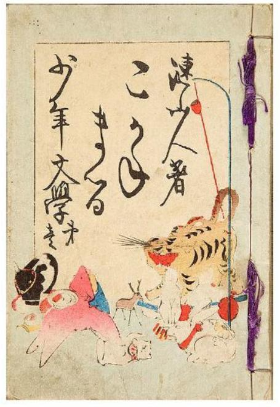 漣山人著
こがね
まる
少年文學第
壱